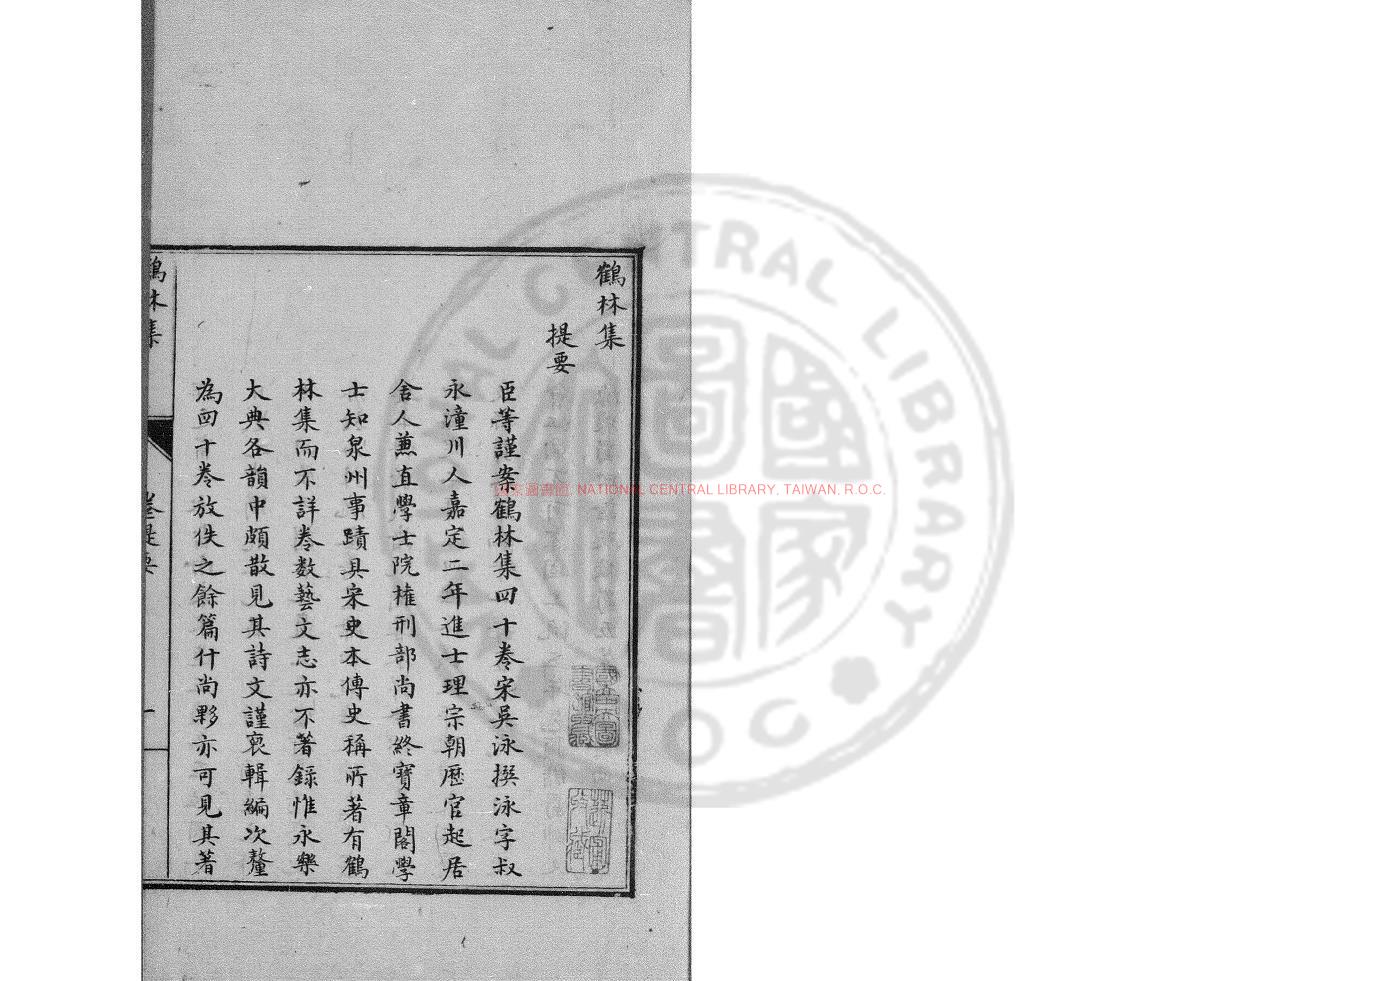 鶴林集
提要
臣等謹案鶴林集四十卷宋吳泳撰泳字叔
永潼川人嘉定二年進士理宗朝歷官起居
舍人兼直學士院權刑部尚書終寶章閣學
士知泉州事蹟具宋史本傳史稱所著有鶴
林集而不詳卷数藝文志亦不著錄惟永樂
大典各韻中頗散見其詩文謹裒輯編次釐
為四十卷放佚之餘篇什尚夥亦可見其著
鶴林集
提要
國家圖書館, NATIONAL CENTRAL LIBRARY, TAIWAN, R.O.C.
NATIONAL CENTRAL LIBRARY
R.O.C